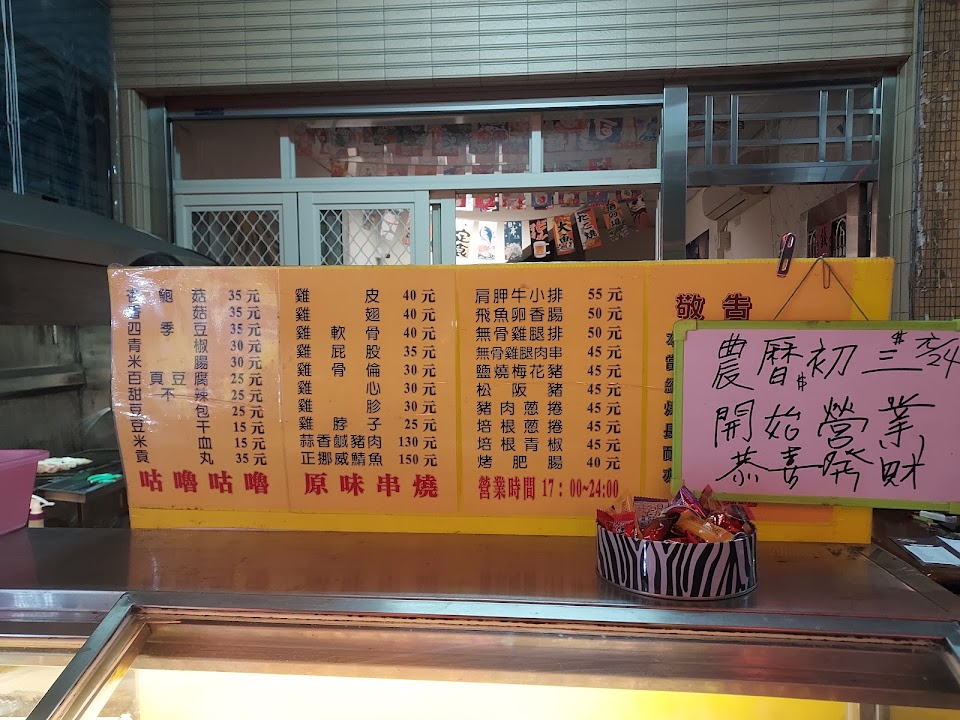 杏鮑菇 35元
香菇 35元
四季豆 35元
青椒 30元
米腸 30元
百頁豆腐 25元
甜不辣 25元
豆包 25元
豆干 15元
米血 15元
貢丸 35元
咕嚕咕嚕
雞皮 40元
雞翅 40元
雞軟骨 40元
雞屁股 35元
雞骨倫 30元
雞心 30元
雞胗 30元
雞脖子 25元
蒜香鹹豬肉 130元
正挪威鯖魚 150元
原味串燒
肩胛牛小排 55元
飛魚卵香腸 50元
無骨雞腿排 50元
無骨雞腿肉串 45元
鹽燒梅花豬 45元
松阪豬 45元
豬肉蔥捲 45元
培根蔥捲 45元
培根青椒 45元
烤肥腸 40元
營業時間17：00~24:00
敬告
農曆初三
開始營業
恭喜發財